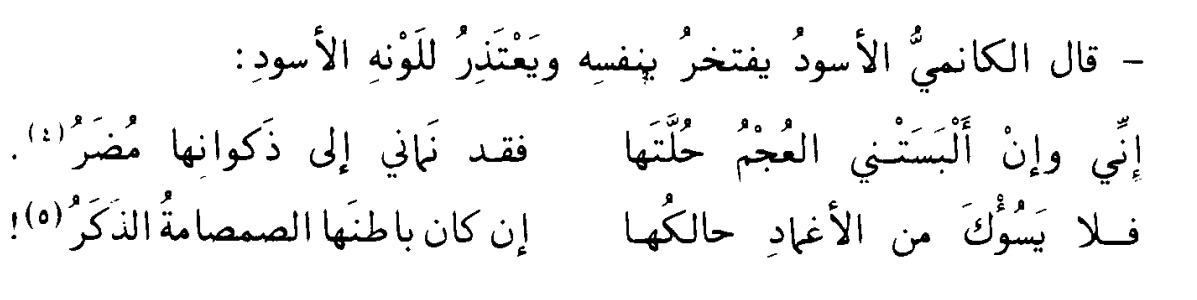 - قال الكانميُّ الأسودُ يفتخرُ بنفسِه ويَعْتَذِرُ للَوْنهِ الأسودِ:
إنِّي وإنْ أَلْبَسَتْني العُجْمُ حُلَّتَها فقد نَماني إلى ذَكوانِها مُضَرُ(٤).
فلا يَسُؤْكَ من الأغمادِ حالكُها إن كان باطنَها الصمصامةُ الذَكَرُ(٥)!